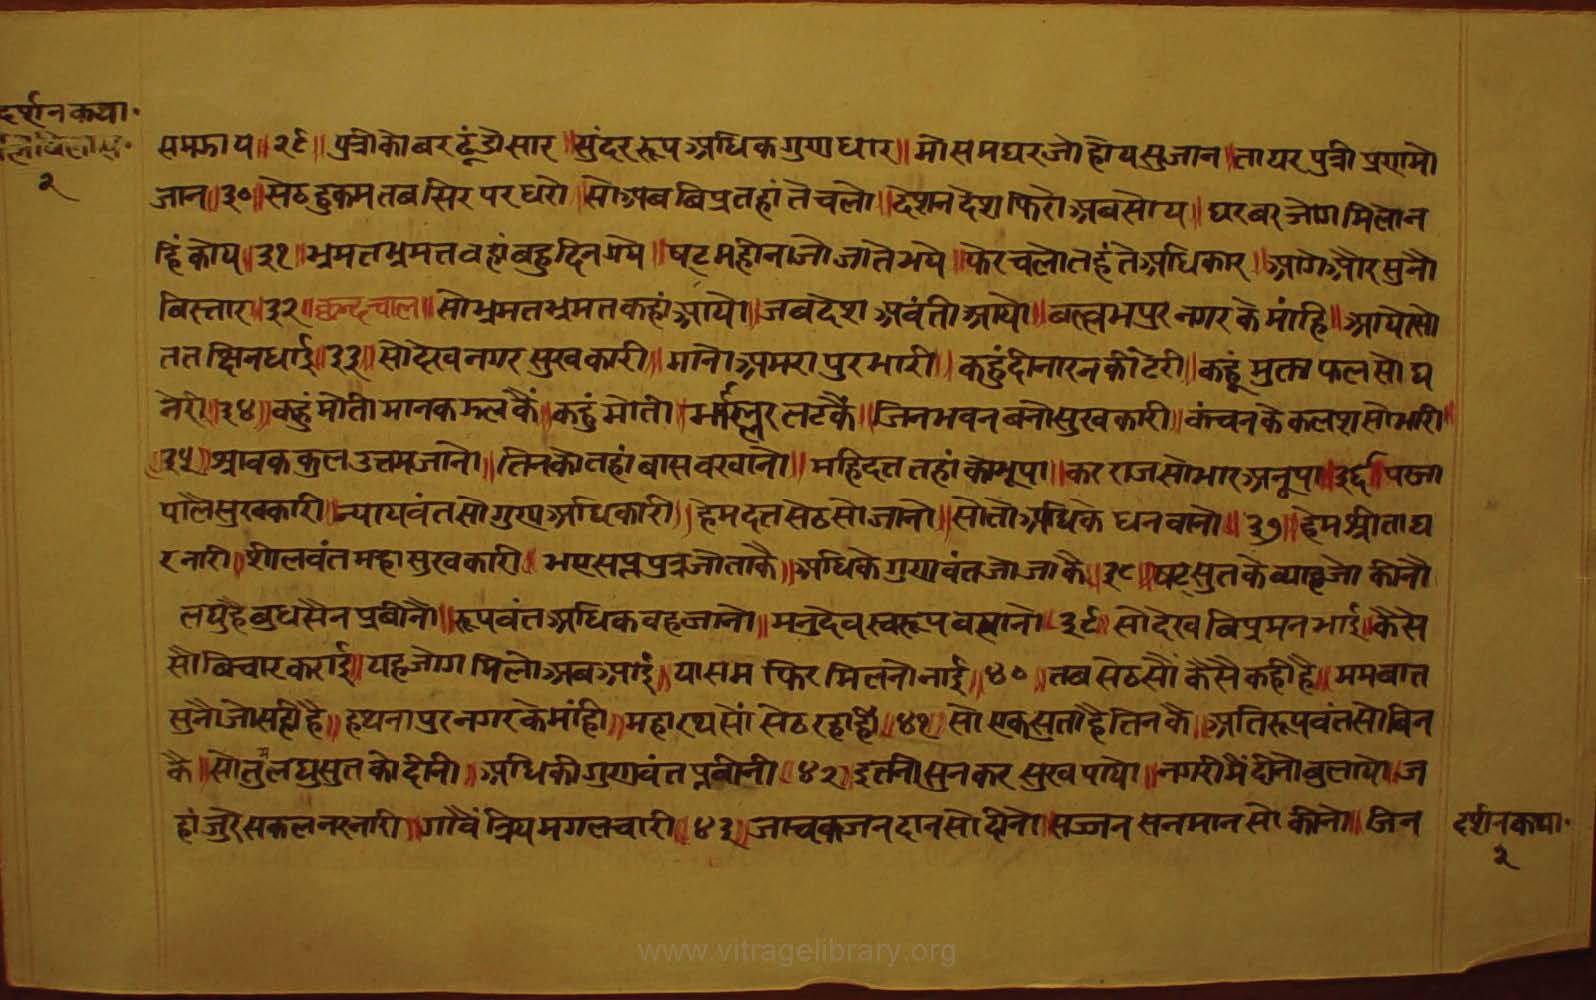 दर्शनकथा॰
२
समझाय॥२९॥ पुत्रीकोबरढूंढोसार॥सुंदररूपअधिकगुणधार॥मोसमघरजोहोयसुजान॥ताघरपुत्रीप्रणामो
जान॥३०॥सेठहुकमतबसिरपरधरो॥सोअबबिप्रतहांतेचलो॥देशनदेशफिरोअबसोय॥घरबरजोगमिलोन
हिंकोय॥३१॥भ्रमतभ्रमतवहांबहुदिनगये॥षटमहीनाजोजातेभये॥फेरचलोतहंतेअधिकार॥आगेऔरसुनौ
बिस्तार॥३२॥छन्दचाल॥सोभ्रमतभ्रमतकहांआयो॥जबदेशअवंतीआयो॥बल्लभपुरनगरकेमांहि॥आयोसो
ततक्षिनधाई॥३३॥सोदेखनगरसुखकारी॥मानोअमरापुरभारी॥कहुंदीनारनकीटेरी॥कहूंमुक्ताफलसोघ
नेरी॥३४॥कहुंमोतीमानकझलकैं॥कहुंमोतीझाल्लरलटकैं॥जिनभवनबनोसुखकारी॥कंचनकेकलशसोभारी॥
॥३५॥श्रावककुलउत्तमजानो॥तिनकोतहांबासवखानो॥महिदत्ततहांकोभूपा॥करराजसोभारअनूपा॥३६॥परजा
पालैसुखकारी॥न्यायवंतसोगुणअधिकारी॥हेमदत्तसेठसोजानो॥सोतोअधिकेधनवानो॥३७॥हेमश्रीताघ
रनारी॥शीलवंतमहासुखकारी॥भएसप्तपुत्रजोताकै॥अधिकेगुणवंतजोजाकै॥३८॥षटसुतकेव्याहजोकीनौ
लघुहैबुधसैनप्रबीनौ॥रूपवंतअधिकवहजानो॥मनुदेवस्वरूपबखानो॥३९॥सोदेखबिप्रमनभाई॥कैसे
सोबिचारकराई॥यहजोगमिलोअबआई॥यासमफिरमिलनोनाई॥४०॥तबसेठसौंकैसैकहीहै॥ममबात
सुनौजोसहीहै॥हथनापुरनगरकेमांही॥महारथसोंसेठरहाही॥४१॥सोएकसुताहैतिनकै॥अतिरूपवंतसोबिन
कै॥सोतुमलघुसुतकोदीनी॥अधिकीगुणवंतप्रबीनी॥४२॥इतनीसुनकरसुखपायो॥नगरीमैंदीनोबुलायो॥ज
हांजुरेसकलनरनारी॥गावैंत्रियमगलचारी॥४३॥जाचकजनदानसोदीनो॥सज्जनसनमानसोकीनो॥जिन
दर्शनकथा॰
२
www.vitragelibrary.org